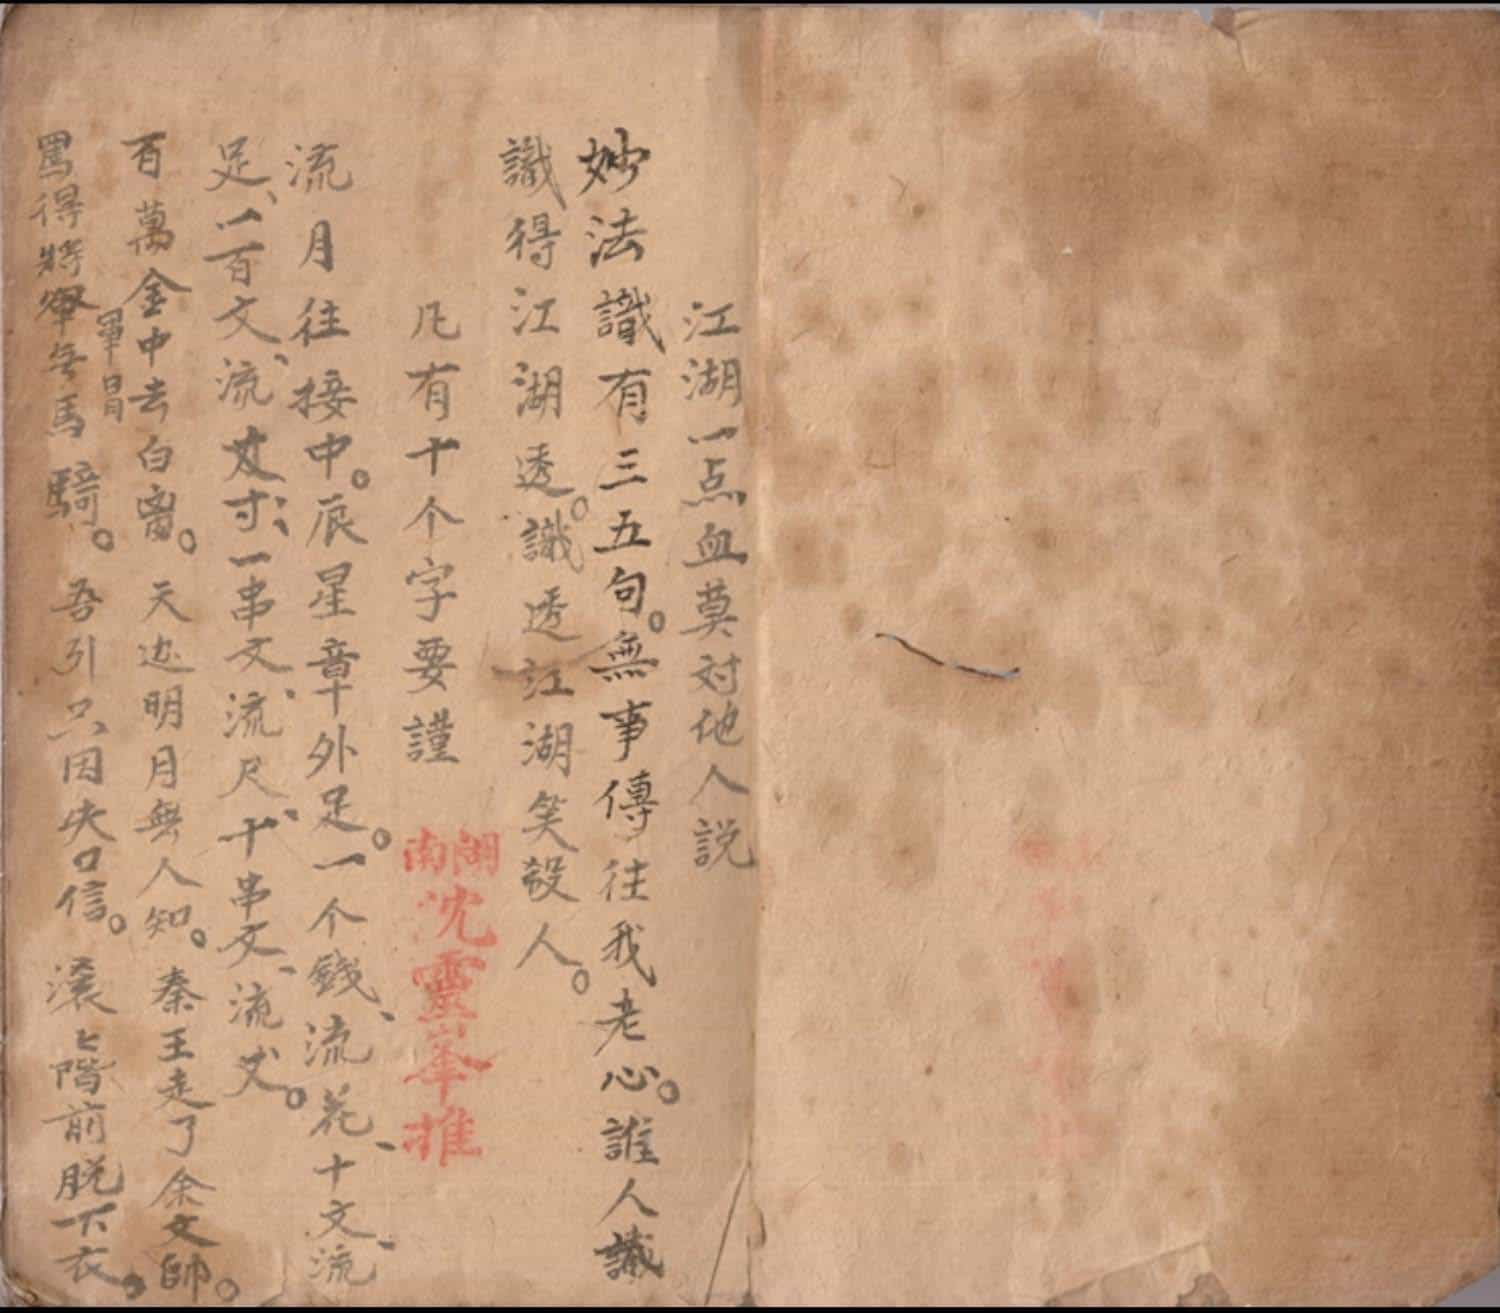 江湖一点血莫对他人説
妙法識有三五句。無事傳往我老心。誰人識
識得江湖透。識透江湖笑殺人。
凡有十个字要謹
湖南
沈靈峯推
流月往接中。辰星章外足。一个錢、流花、十文、流
足、一百文、流寸、一串文、流尺、十串文、流丈。
百萬金中去白。天边明月無人知。秦王走了余文帥。
軍冒
罵得將軍無馬騎。吾引只因失口信。滚〻階前脱下衣。